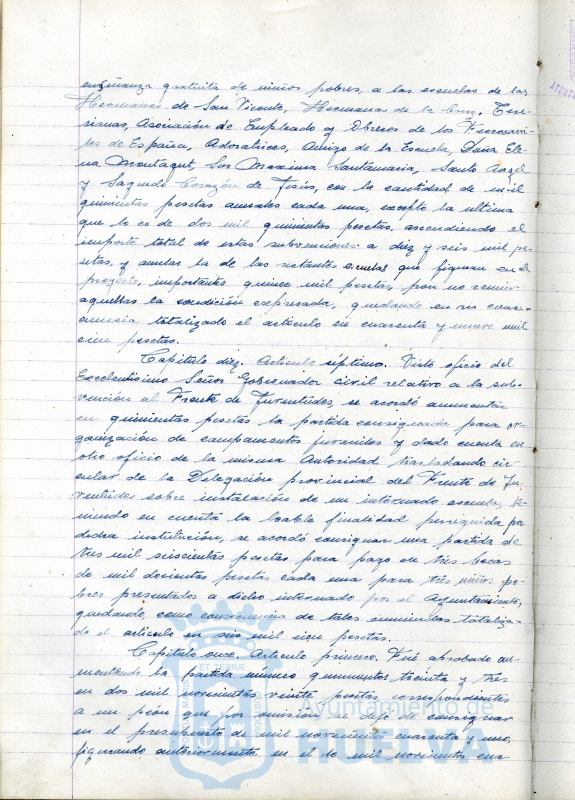 enseñanza gratuita de niños pobres, a las escuelas de las
Hermanas de San Vicente, Hermanas de la Cruz, Tere-
sianas, Asociación de Empleado y Obreros de los Ferrocarri-
les de España, Adoratrices, Amigo de la Escuela, Dona Ele-
na Montagut, Sor Maxima Santamaria, Santo Angel
y Sagrado Corazón de Jesús, con la cantidad de mil
quinientas pesetas anuales cada una, excepto la ultima
que lo es de dos mil quinientas pesetas, ascendiendo el
importe total de estas subvenciones a diez y seis mil pe-
setas, y anular la de las restantes escuelas que figuran en el
proyecto, importantes quince mil pesetas, por no reunir
aquellas la condición expresada, quedando en su conse-
cuencia totalizado el articulo en cuarenta y nueve mil
cien pesetas.
Capitulo diez. Articulo séptimo. Visto oficio del
Excelentisimo Señor Gobernador civil relativo a la sub-
vención al Frente de Juventudes, se acordó aumentar
en quinientas pesetas la partida consignada para or-
ganización de campamentos juveniles y dado cuenta en
otro oficio de la misma Autoridad trasladando cir-
cular de la Delegación provincial del Frente de Ju-
ventudes sobre instalación de un internado escuela, te-
niendo en cuenta la loable finalidad perseguida por
dicha institución, se acordó consignar una partida de
tres mil seiscientas pesetas para pago en tres becas
de mil doscientas pesetas cada una para tres niños po-
bres presentados a dicho internado por el Ayuntamiento,
quedando, como consecuencia de tales aumentos totaliza-
do el articulo en seis mil cien pesetas.
Capitulo once. Articulo primero. Fué aprobado au-
mentando la partida numero quinientos treinta y tres
en dos mil novecientas veinte pesetas correspondientes
a un peón que por omisión se dejó de consignar
en el presupuesto de mil novecientos cuarenta y uno,
figurando anteriormente en el de mil novecientos cua-
Ayuntamiento de
HUELVA